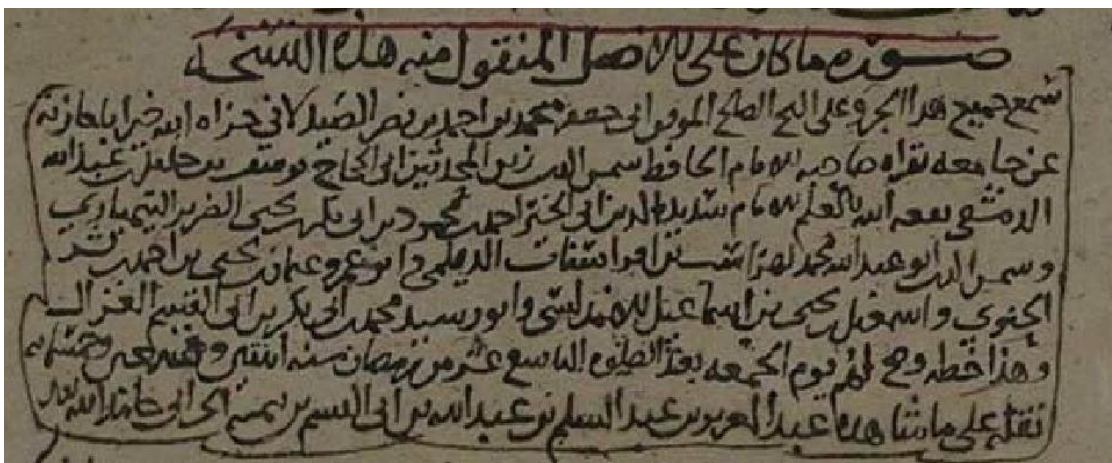 صورة ما كان على الاصل المنقول منه هذه النسخة
سمع جميع هذا الجزو على الشيخ الصالح الموفق ابي جعفر محمد بن احمد بن نصر الصيدلاني جزاه الله خيرا باجازته
عن جامعه بقراة صاحبه الامام الحافظ شمس الدين زين المحدثين ابي الحجاج يوسف بن خليل بن عبد الله
الدمشقي نفعه الله بالعلم الامام سديد الدين ابي احمد بن محمود بن ابي بكر يحيى الضرير
وشمس الدين ابو عبد الله محمد بن الديلمي وابو عمرو عثمان بن يحيى بن احمد بن
واسمعيل بن يحيى بن اسماعيل الاندلسي وابو رشيد محمد بن ابي بكر بن ابي القسم الغزال
وهذا خطه وصح لهم يوم الجمعة بعد الصلوة التاسع عشر من رمضان سنة اثنتين وتسعين وخمسمائة
نقله على ما شاهده عبد العزيز بن عبد السلم بن عبد الله بن ابي القسم بن تيمية الحراني حامدا لله تعالى